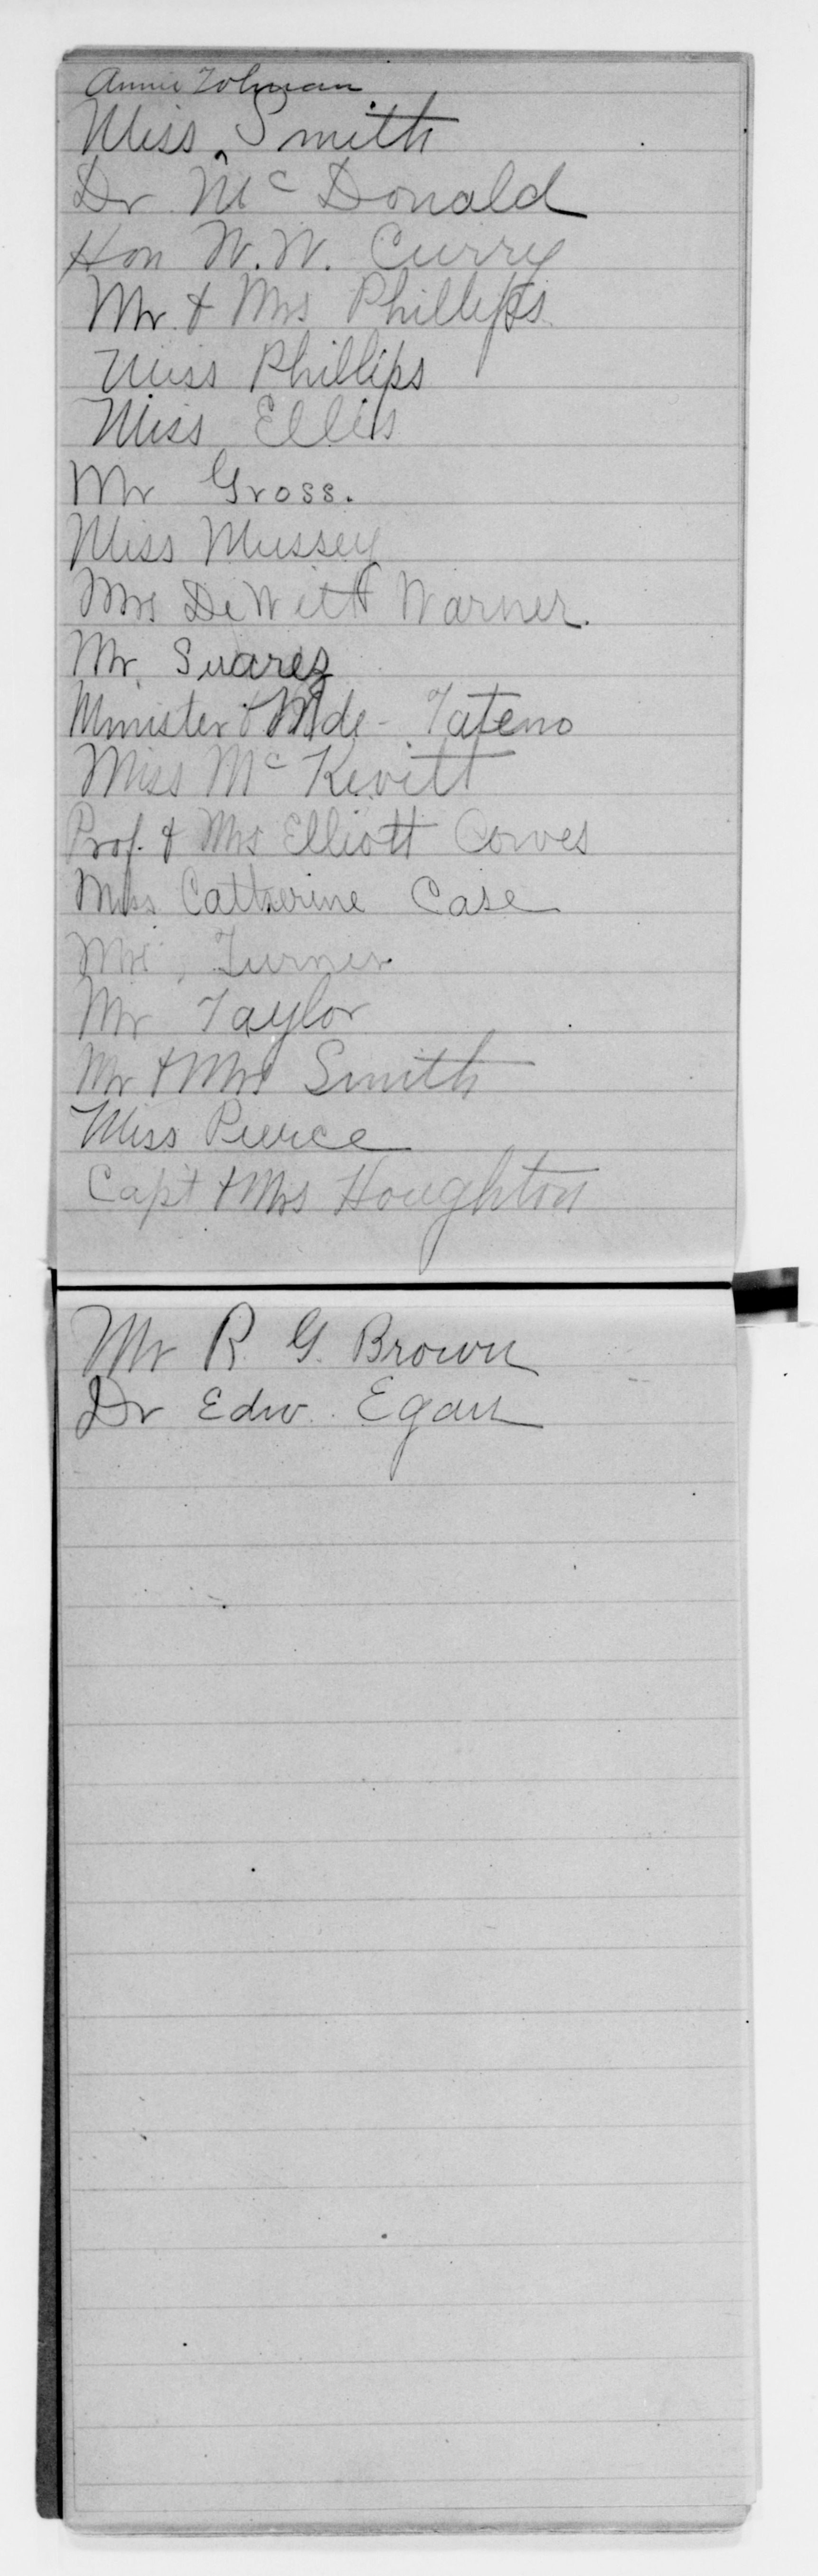 Annie Tolman
Miss Smith
Dr Mc Donald
Hon W. W. Curry
Mr & Mrs Phillips
Miss Phillips
Miss Ellis
Mr Gross.
Miss Mussey
Mrs DeWitt Warner.
Mr. Suarez
Minister & Mde - Tateno
Miss Mc Kevitt
Prof. & Mrs Elliott Coues
Miss Catherine Case
Turner
Mr Taylor
Mr & Mrs Smith
Miss Pierce
Capt & Mrs Houghton
Mr R. G. Brown
Dr Edw. Egan